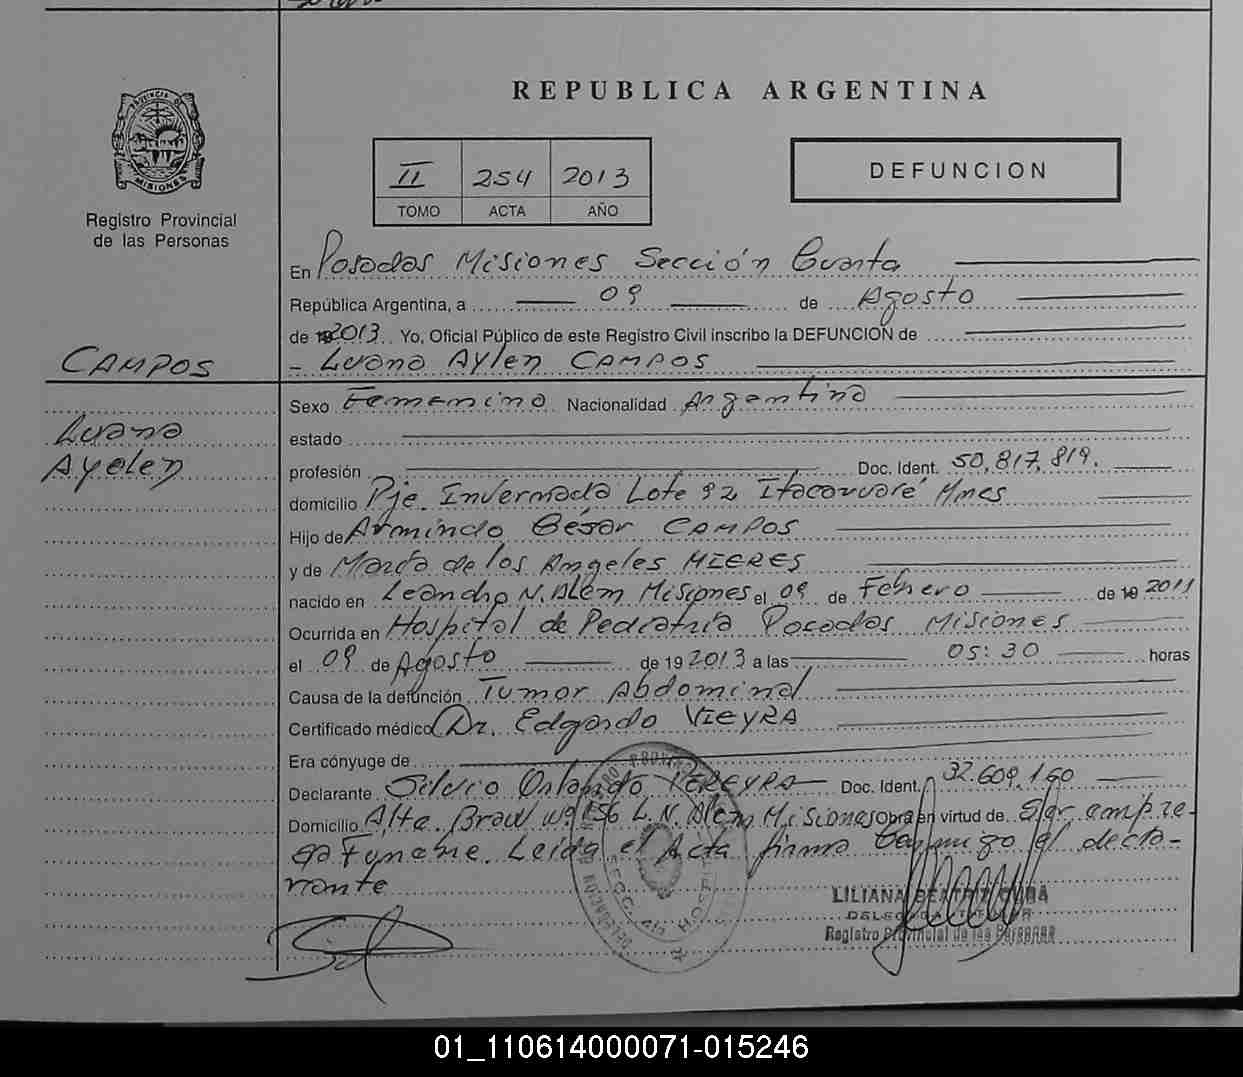 REPUBLICA ARGENTINA
PROVINCIA DE
MISIONES
Registro Provincial
de las Personas
II 254 2013
TOMO ACTA AÑO
DEFUNCION
En Posadas Misiones Sección Cuarta
República Argentina, a 09 de Agosto
de 2013 Yo, Oficial Público de este Registro Civil inscribo la DEFUNCION de
CAMPOS
- Luana Aylen CAMPOS
Luana
Ayelen
Sexo Femenino Nacionalidad Argentina
estado
profesión Doc. Ident. 50.817.819.
domicilio Pje. Invernada Lote 92 Itacaruaré Mnes
Hijo de Armindo César CAMPOS
y de María de los Angeles MIERES
nacido en Leandro N. Alem Misiones el 09 de Febrero de 19 2011
Ocurrida en Hospital de Pediatría Posadas Misiones
el 09 de Agosto de 19 2013 a las 05:30 horas
Causa de la defunción Tumor Abdominal
Certificado médico Dr. Edgardo VIEYRA
Era cónyuge de
Declarante Silvio Orlando PEREYRA Doc. Ident. 32.609.160
Domicilio Alte. Brown Nº 156 L.N. Alem Misiones Obra en virtud de Ser empre-
sa Funebre. Leida el Acta firma conmigo el decla-
rante
LILIANA BEATRIZ
DELEGADA TITULAR
Registro Provincial de las Personas
01_110614000071-015246